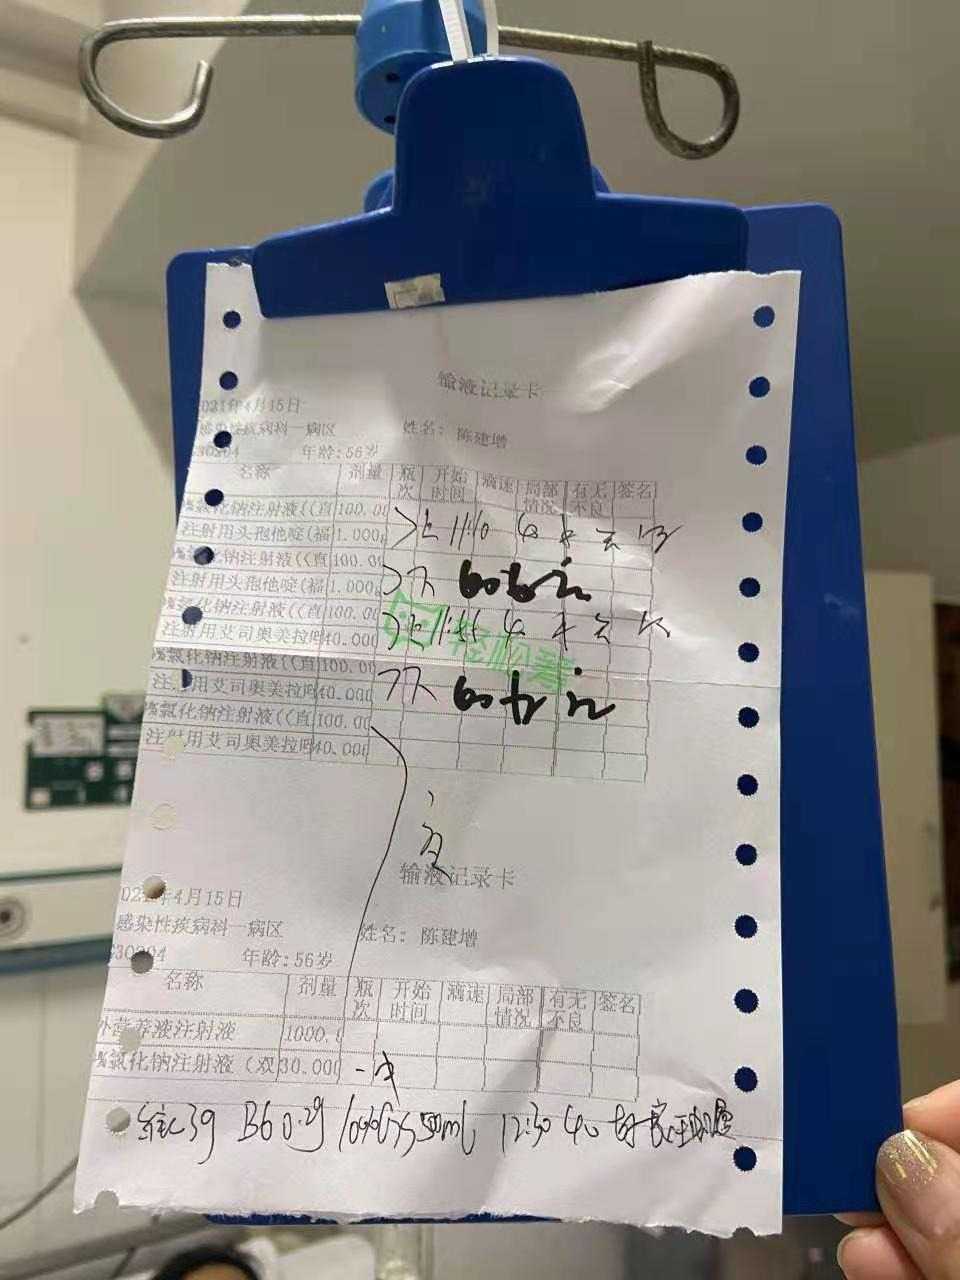 输液记录卡
021年4月15日
感染性疾病科一病区 姓名: 陈建增
30204 年龄:56岁
名称 剂量 瓶次 开始时间 滴速 局部情况 有无不良 签名
%氯化钠注射液((直 100.00
注射用头孢他啶(福 1.000 11:10
%氯化钠注射液((直 100.00
注射用头孢他啶(福 1.000
%氯化钠注射液((直 100.00
注射用艾司奥美拉唑 40.000 11:55
轻松筹
%氯化钠注射液((直 100.00
注射用艾司奥美拉唑 40.000
%氯化钠注射液((直 100.00
注射用艾司奥美拉唑 40.000
输液记录卡
021年4月15日
感染性疾病科一病区 姓名: 陈建增
30204 年龄:56岁
名称 剂量 瓶次 开始时间 滴速 局部情况 有无不良 签名
外营养液注射液 1000.0
%氯化钠注射液(双 30.000
维C 3g B6 0.2g 10%GS 500ml 12:30 40